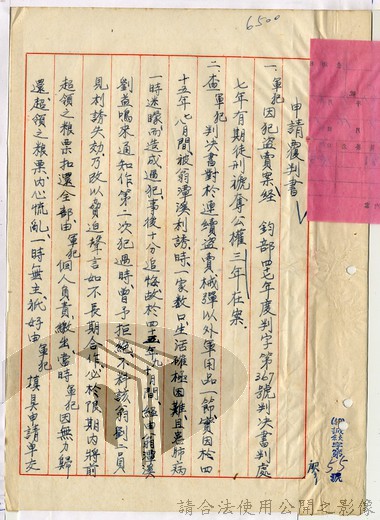 6500
申請覆判書
一、軍犯因犯盜賣案經　鈞部四七年度判字第267號判決書判處
七年有期徒刑褫奪公權三年在案。
二、查軍犯判決書對於連續盜賣械彈以外軍用品一節實因於四
十五年七八月間被翁潭溪利誘時一家數口生活確極困難且患肺病
一時迷矇而造成過犯事後十分追悔故於四十五年九十月間經由翁潭溪
劉益鳴來通知作第二次犯過時曾予拒絕不料該翁劉二員
見利誘失効乃改以脅迫聲言如不長期合作必於限期內將前
超領之粮票扣還全部由軍犯個人負責繳出當時軍犯因無力歸
還超領之粮票內心慌亂一時無主祇好由軍犯填具申請單交
號
請合法使用公開之影像